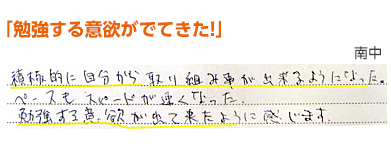 「勉強する意欲がでてきた!」
南中
積極的に自分から取り組み事が出来るようになった。
ペースもスピードが速くなった。
勉強する意欲が出て来たように感じます。